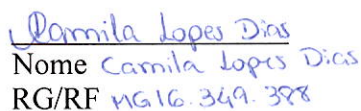 Camila Lopes Dias
Nome Camila Lopes Dias
RG/RF MG16.349.398